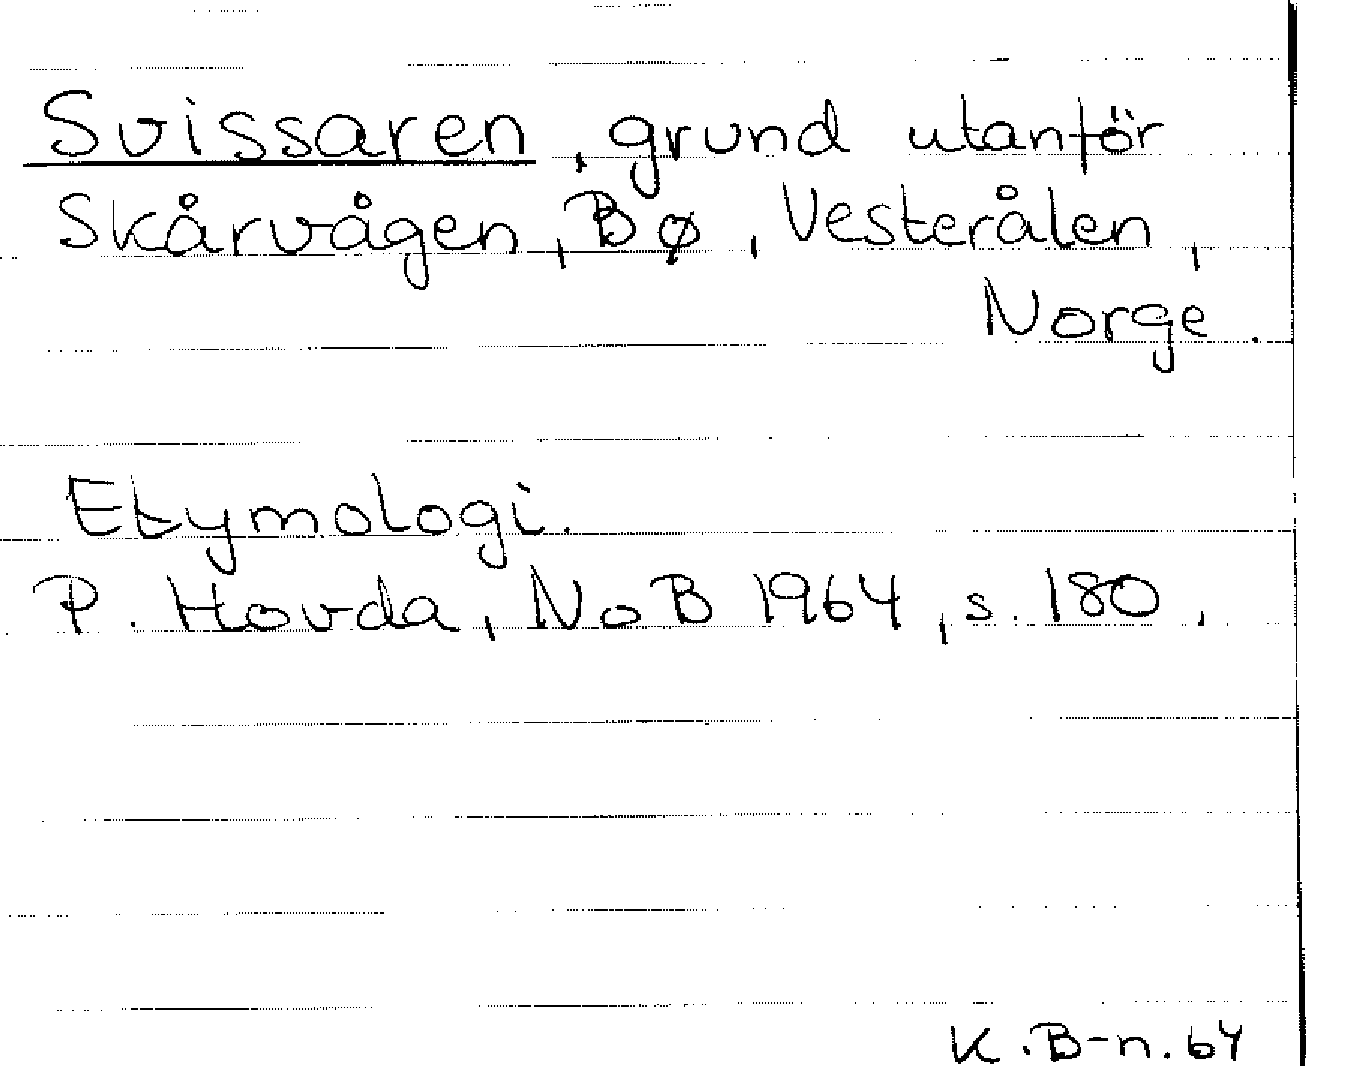 Svissaren, grund utanför
Skårvågen, Bø, Vesterålen,
Norge.
Etymologi.
P. Hovda, NoB 1964, s. 180.
K.B-n. 64